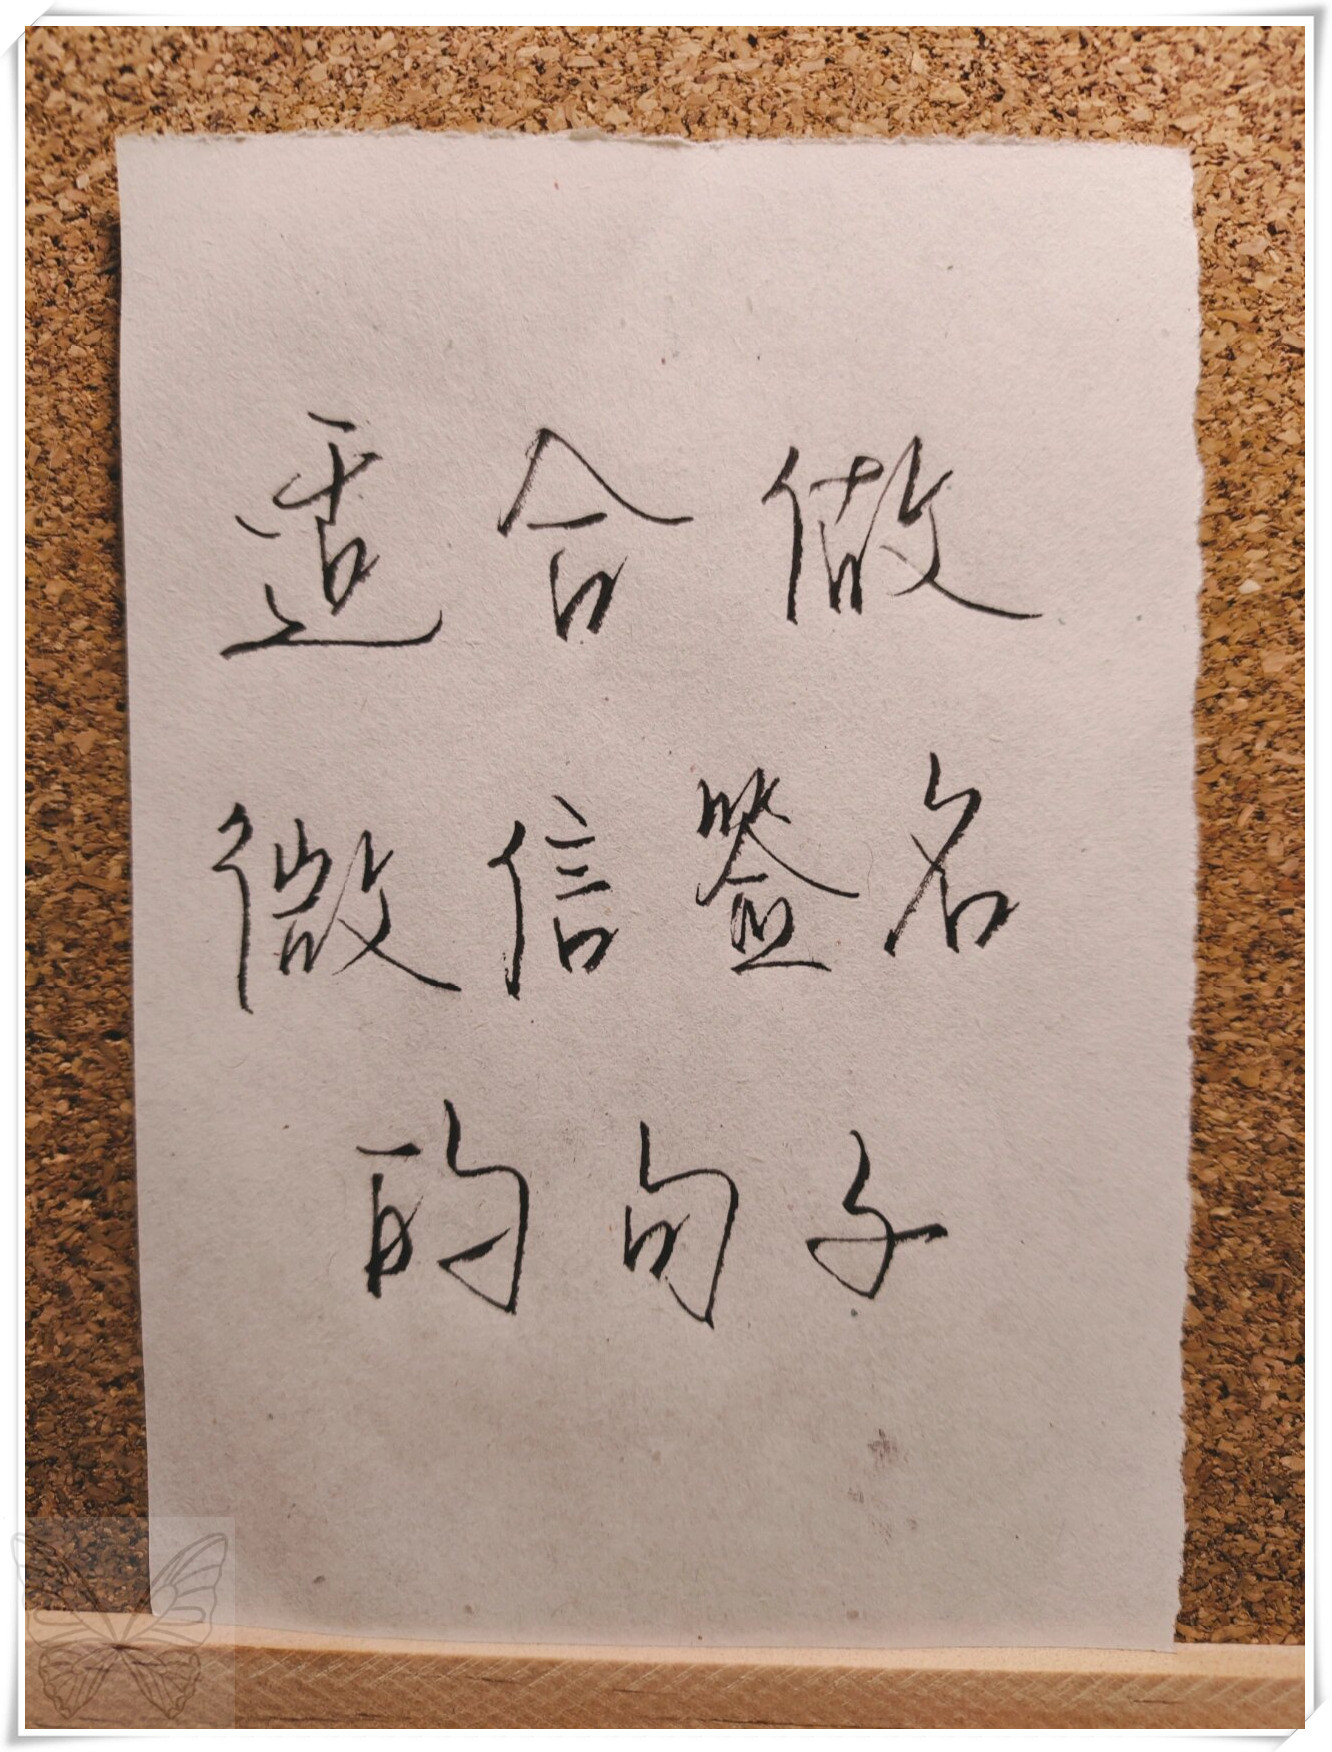 适合做
微信签名
的句子